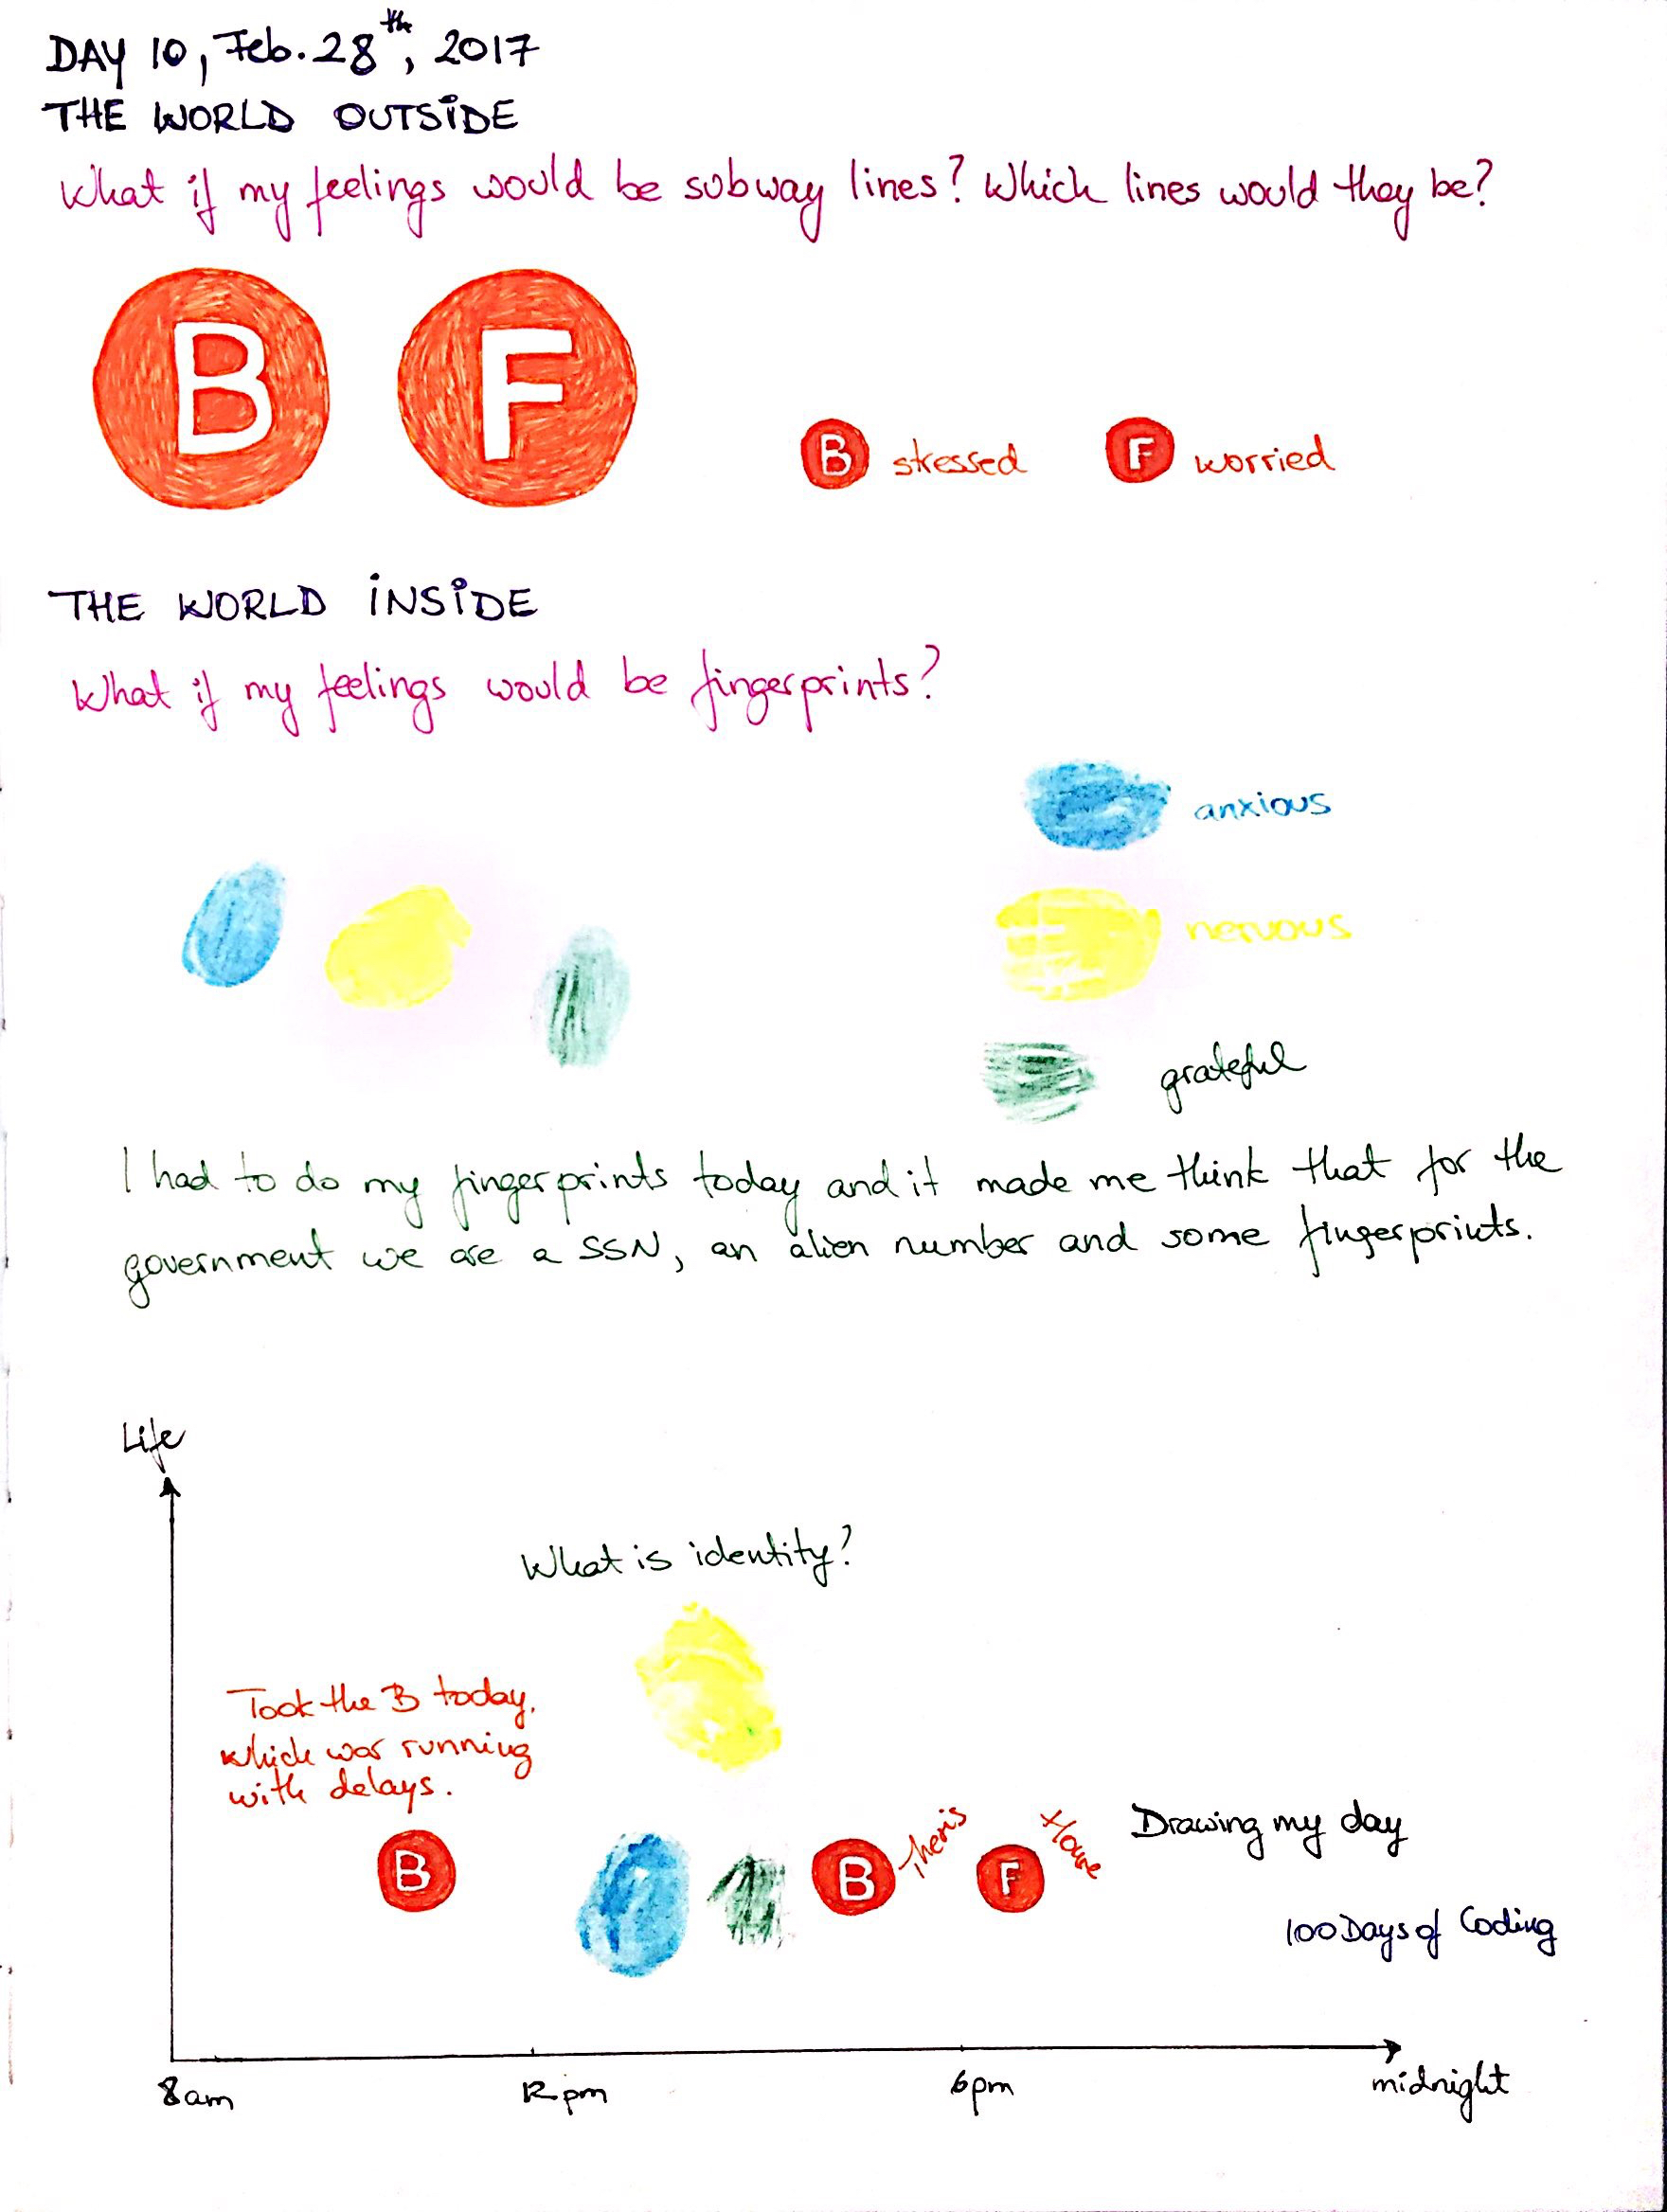 DAY 10, Feb. 28th, 2017
THE WORLD OUTSIDE
What if my feelings would be subway lines? Which lines would they be?
B F
B stressed F worried
THE WORLD INSIDE
What if my feelings would be fingerprints?
anxious
nervous
grateful
I had to do my fingerprints today and it made me think that for the
government we are a SSN, an alien number and some fingerprints.
Life
What is identity?
Took the B today,
which was running
with delays.
B
B
F Home
Drawing my day
100 Days of Coding
8am 12pm 6pm midnight